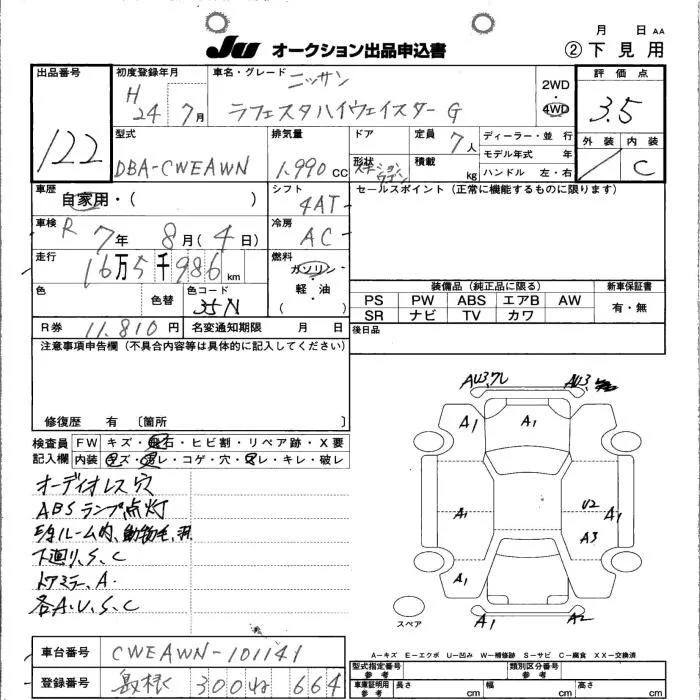 月 日 AA
JU オークション出品申込書 ②下見用
出品番号 122
初度登録年月 H24年 7月
車名・グレード ニッサン
ラフェスタハイウェイスター G
2WD ・ 4WD
評価点 3.5
外装 内装 C
型式 DBA-CWEAWN
排気量 1.990 CC
ドア 形状 ステーションワゴン
定員 7人
積載 kg
ディーラー・並行
モデル年式 年
ハンドル 左・右
車歴 自家用・( )
シフト 4AT
セールスポイント(正常に機能するものに限ります)
車検 R 7年 8月(4日)
冷房 AC
走行 16万5千986km
燃料 ガソリン・軽油・( )
色 色替 色コード 35N
装備品(純正品に限る) 新車保証書
PS PW ABS エアB AW 有・無
SR ナビ TV カワ
R券 11.810円 名変通知期限 月 日
後日品
注意事項申告欄(不具合内容等は具体的に記入してください)
修復歴 有〔箇所 〕
検査員記入欄 FW キズ・飛石・ヒビ割・リペア跡・X要
内装 キズ・汚レ・コゲ・穴・スレ・キレ・破レ
オーディオレス穴
ABSランプ点灯
ルーム内、動物毛、
下廻り、S、C
ドアミラー、A.
各A、U、S、C
AU3,ワレ AU3,
A1 A1
A1 U2 A1
A3
A1
A1 A2
スペア
A-キズ E-エクボ U-凹ミ W-補修跡 S-サビ C-腐食 XX-交換済
車台番号 CWEAWN-101141
型式指定番号 参考 類別区分番号 参考
登録番号 島根 300 ね 664
車庫証明用 参考 長さ cm 幅 cm 高さ cm